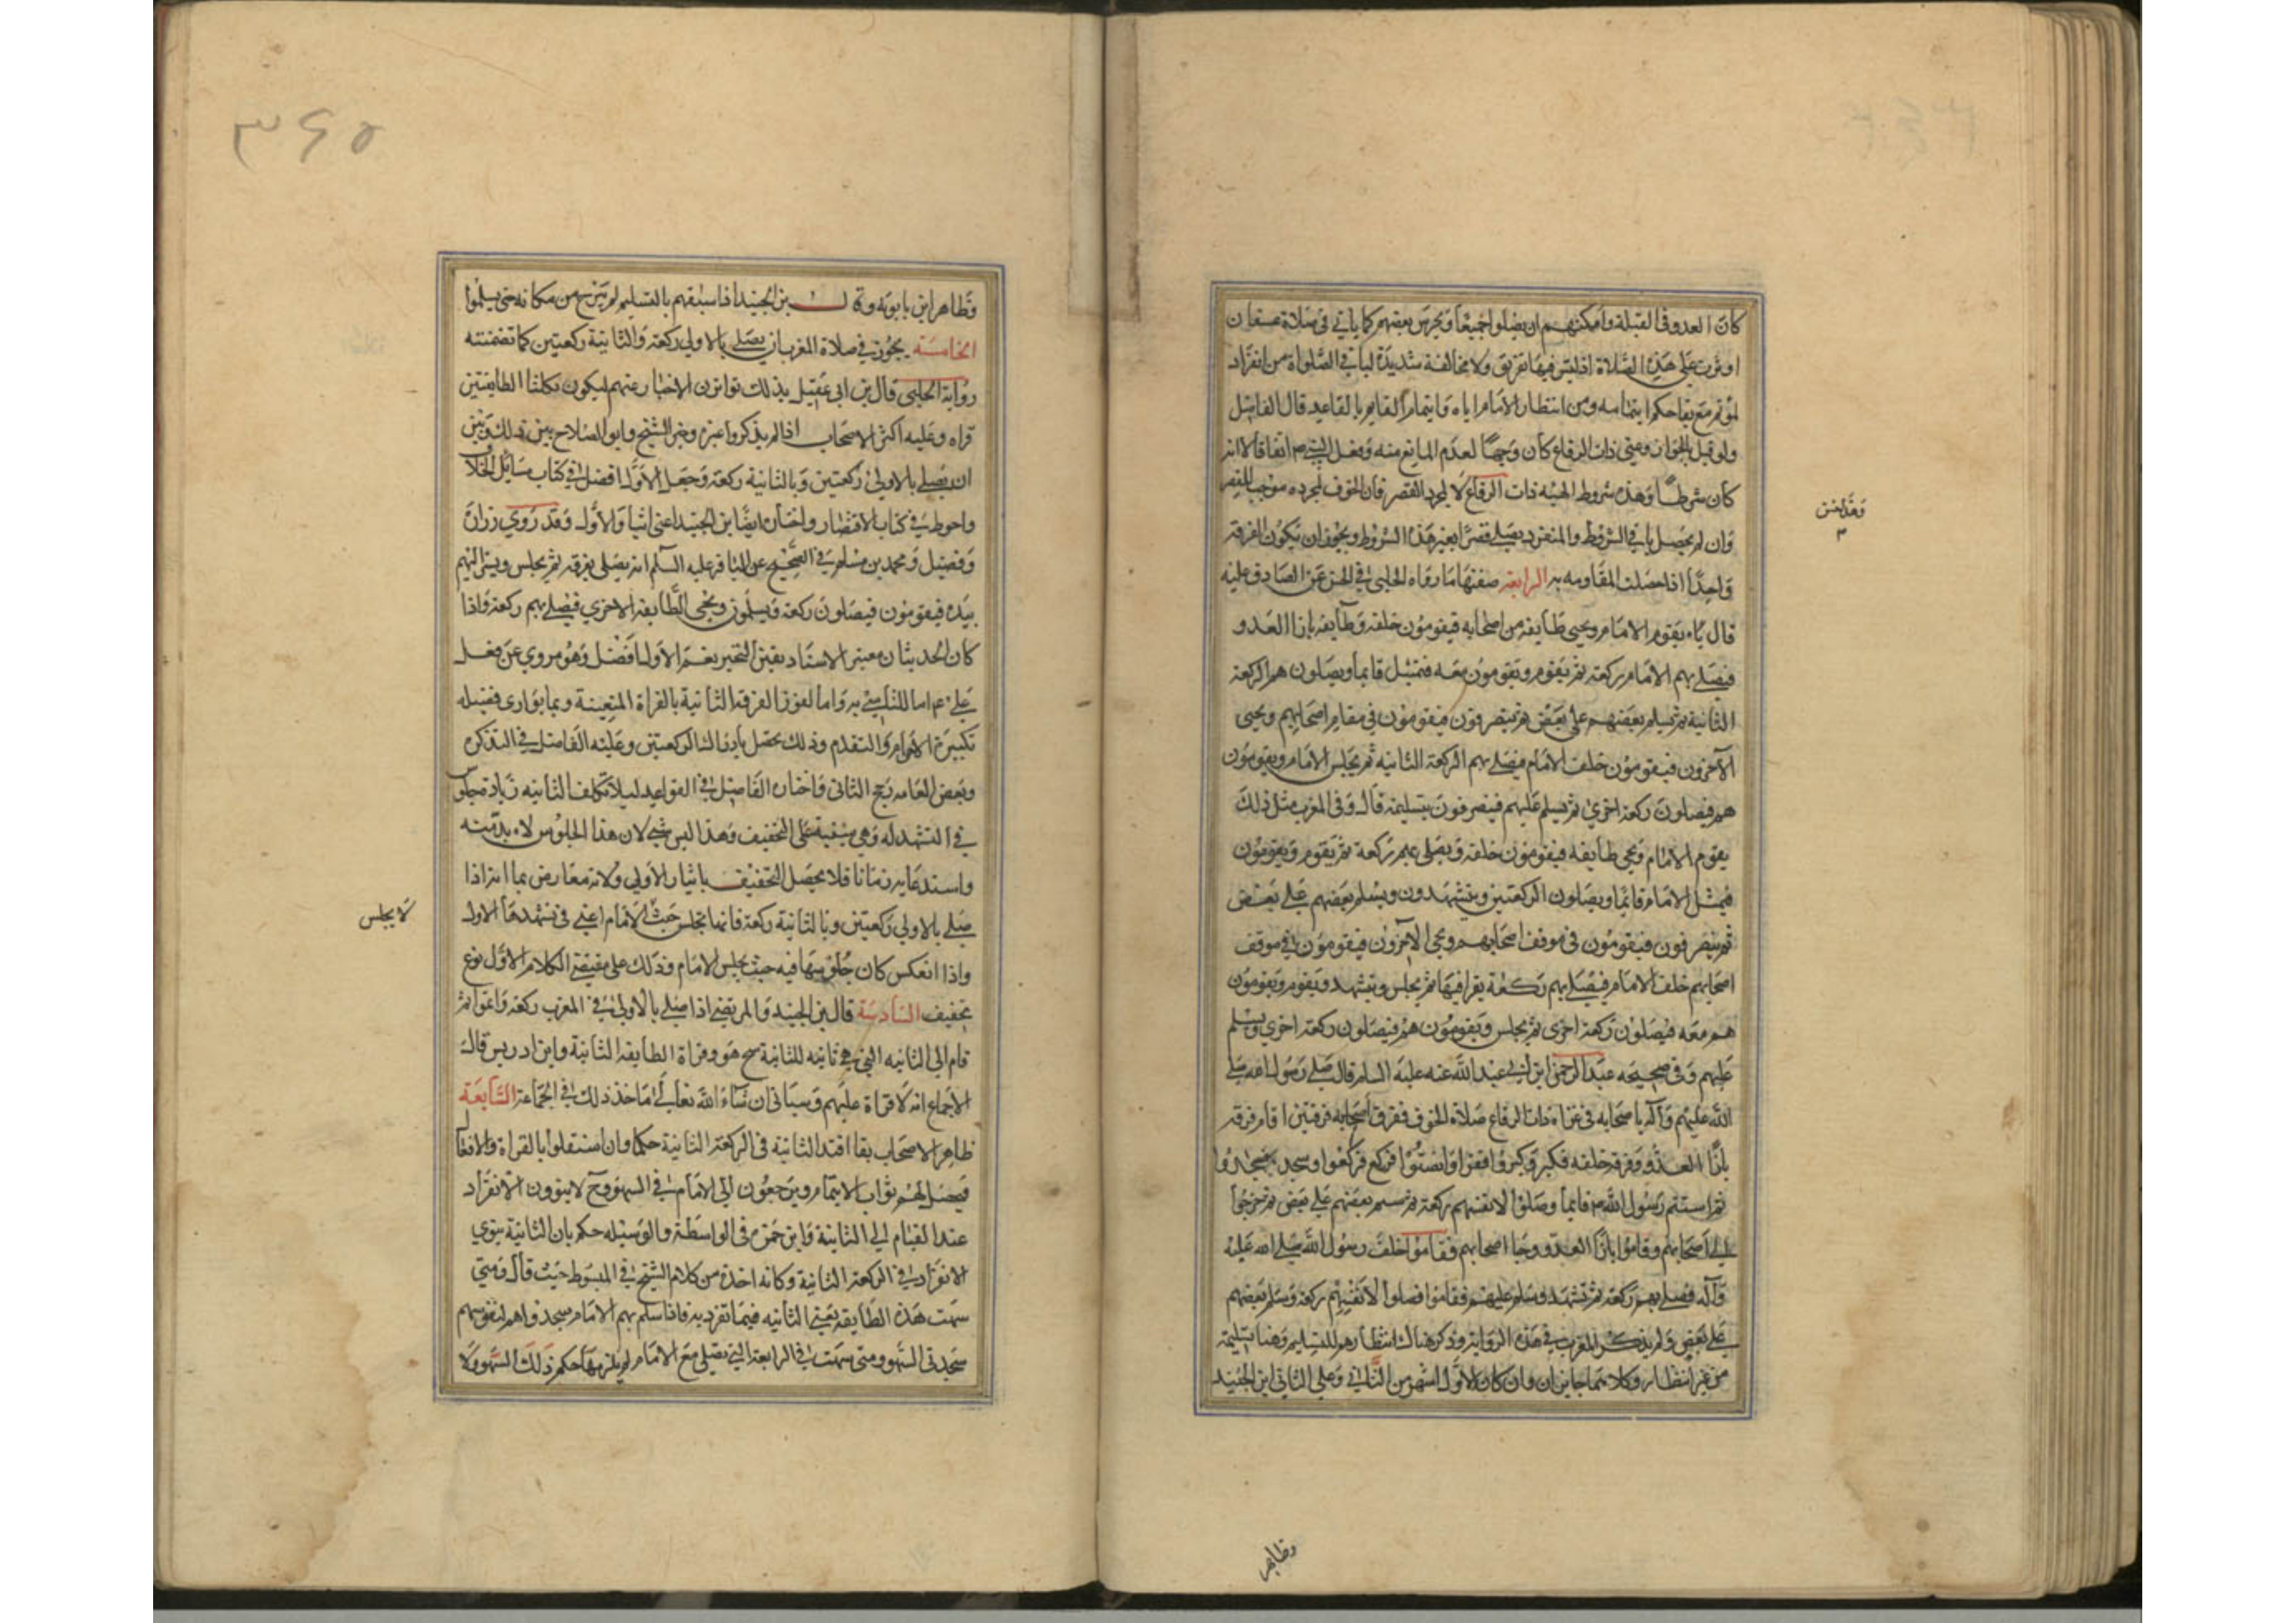 كان العدو فى القبلة وامكنهم ان يصلوا جميعا ويحرس بعضهم كما ياتي فى صلاة عسفان
اوثرت على هذه الصلاة اذ ليس فيها تفريق ولا مخالفة شديدة لباقي الصلواة من انفراد
المؤتم مع بقا حكم ايتمامه ومن انتظار الامام اياه وايتمام القايم بالقاعد قال الفاضل
ولو قيل بالجواز وعنى ذات الرقاع كان وجها لعدم المانع منه وفعل النبي ص اتفاقا لا انه
كان شرطا وهذه شروط الهيئه ذات الرقاع لا لمجرد القصر فان الخوف لمجرده موجب للقصر
وان لم يحصل باقي الشروط والمنفرد يصلي قصرا بغير هذه الشروط ويجوز ان يكون الفرقة
واحدا اذا حصلت المقاومه به الرابعة صفتها ما رواه الحلبي في الحسن عن الصادق عليه
قال يقوم الامام ويجيى طايفه من اصحابه فيقومون خلفه وطايفه بازا العدو
فيصلي بهم الامام ركعة ثم يقوم ويقومون معه فيمثل قايما ويصلون هم الركعة
الثانية ثم يسلم بعضهم على بعض ثم ينصرفون فيقومون في مقام اصحابهم ويجيى
الآخرون فيقومون خلف الامام فيصلي بهم الركعة الثانيه ثم يجلس الامام ويقومون
هم فيصلون ركعة اخرى ثم يسلم عليهم فينصرفون بتسليمه قال وفى المغرب مثل ذلك
يقوم الامام ويجي طايفه فيقومون خلفه ويصلى بهم ركعة ثم يقوم ويقومون
فيمثل الامام قايما ويصلون الركعتين ويتشهدون ويسلم بعضهم علي بعض
ثم ينصرفون فيقومون فى موقف اصحابهم ويجى الآخرون فيقومون في موقف
اصحابهم خلف الامام فيصلي بهم ركعة يقرا فيها ثم يجلس ويتشهد ويقوم ويقومون
هم معه فيصلون ركعة اخرى ثم يجلس ويقومون هم فيصلون ركعة اخري ويسلم
عليهم وفى صحيحه عبد الرحمن ابن ابي عبد الله عنه عليه السلام قال صلي رسول الله صلي
الله عليهم وآله باصحابه فى غزاه ذات الرقاع صلاة الخوف ففرق اصحابه فرقتين اقام فرقه
بازا العدو وفرقه خلفه فكبر وكبروا فقرا وانصتوا فركع فركعوا وسجد فسجدوا
ثم استتم رسول الله ص قائما وصلوا لانفسهم ركعة ثم سلم بعضهم علي بعض ثم خرجوا
الي اصحابهم وقاموا بازا العدو وجا اصحابهم فقاموا خلف رسول الله صلي الله عليه
وآله فصلى بهم ركعة ثم تشهد وسلم عليهم فقاموا فصلوا لانفسهم ركعة وسلم بعضهم
علي بعض ولم يذكر المغرب في هذه الرواية وذكر هناك انتظارهم للتسليم وهنا تسليمه
من غير انتظار وكلاهما جايزان وان كان الاول اشهر من الثاني وعلي الثاني ابن الجنيد
وهذا
٣
وظاهر
٣٤٥
وظاهر ابن بابويه وقال ابن الجنيد اذا سبقهم بالتسليم لم يبرح من مكانه حتى يسلموا
الخامسة يجوز في صلاة المغرب ان يصلي بالاولى ركعة والثانية ركعتين كما تضمنته
رواية الحلبي قال بن ابي عقيل بذلك تواترت الاخبار عنهم ليكون لكلتا الطايفتين
قراه وعليه اكثر الاصحاب اذا لم يذكروا غيره وخير الشيخ وابو الصلاح بين ذلك وبين
ان يصلي بالاولى ركعتين وبالثانية ركعة وجعل الاول افضل في كتاب مسايل الخلاف
واحوط في كتاب الاقتصار واختاره ايضا ابن الجنيد اعني اثيار الاول وقد روي زرارة
وفضيل ومحمد بن مسلم في الصحيح عن الباقر عليه السلام انه يصلى بفرقه ثم يجلس ويشير اليهم
بيده فيقومون فيصلون ركعة ويسلمون وتجى الطايفه الاخرى فيصلى بهم ركعة واذا
كان الحديثان معتبر الاسناد يقين التخير نعم الاول افضل وهو مروي عن فعل
علي ع اما للتاسي به واما لفوز الفرقة الثانية بالقراة المتعينة وبما يوازى فضيله
تكبيرة الاحرام والتقدم وذلك يحصل بادراك الركعتين وعليه الفاضل في التذكره
وبعض العامه رجح الثانى واختاره الفاضل في القواعد ليلا تكلف الثانيه زيادة جلوس
في التشهد له وهي مبنية على التخفيف وهذا ليس بشي لان هذا الجلوس لا بد منه
واستدعايه زمانا فلا يحصل التخفيف باثيار الاولى ولانه معارض بما انه اذا
صلي بالاولي ركعتين وبالثانية ركعة فانها تجلس حيث الامام اعني فى تشهدها الاول
واذا انعكس كان جلوسها فيه حيث يجلس الامام وذلك على مقتضى الكلام الاول نوع
تخفيف السادسة قال بن الجنيد والمرتضى اذا صلي بالاولي في المغرب ركعة واتموا ثم
قام الي الثانيه التي هي ثانيه للثانية سبح هو وقراة الطايفه الثانية وابن ادريس قال
الاجماع انه لا قراة عليهم وسياتى ان شاء الله تعالي ما خذ ذلك في الجماعة السابعة
ظاهر الاصحاب بقا اقتدا الثانية فى الركعة الثانية حكما وان استقلوا بالقراة والافعال
فيحصل لهم ثواب الايتمام ويرجعون الى الامام في السهو وح لا ينوون الانفراد
عند القيام الي الثانية وابن حمزه فى الواسطة والوسيله حكم بان الثانية ينوي
الانفراد في الركعة الثانية وكانه اخذه من كلام الشيخ في المبسوط حيث قال ومتي
سهت هذه الطايفة يعني الثانيه فيما تفرد به فاذا سلم بهم الامام سجدوا هم لسهوهم
سجدتى السهو ومتى سهت في الرابعة التي تصلي مع الامام لم يلزمها حكم ذلك السهو ولا
لا يجلس